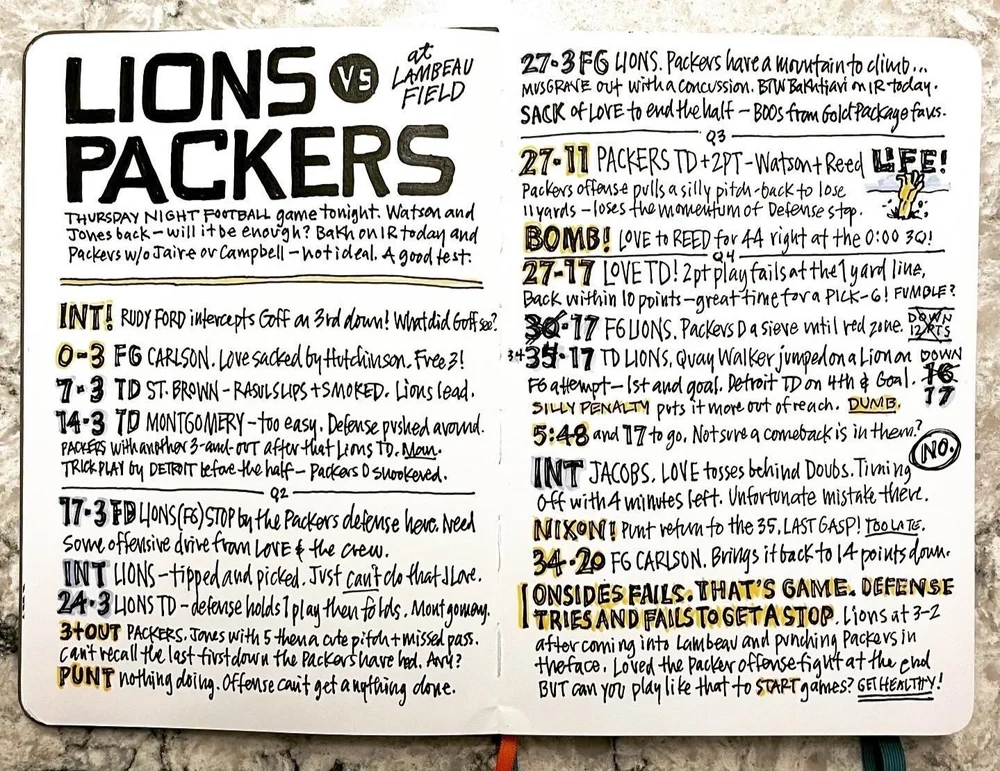 LIONS VS
at LAMBEAU FIELD
PACKERS
THURSDAY NIGHT FOOTBALL game tonight. Watson and
Jones back – will it be enough? Bakh on IR today and
Packers w/o Jaire or Campbell – not ideal. A good test.
INT! RUDY FORD intercepts Goff on 3rd down! What did Goff see?
0-3 FG CARLSON. Love sacked by Hutchinson. Free 3!
7-3 TD ST. BROWN – RASUL SLIPS + SMOKED. Lions lead.
14-3 TD MONTGOMERY – too easy. Defense pushed around.
PACKERS with another 3-and-OUT after that Lions TD. Man.
TRICK PLAY by DETROIT before the half – Packers D snookered.
Q2
17-3 LIONS (FG) STOP by the Packers defense here. Need
some offensive drive from LOVE & the crew.
INT LIONS – tipped and picked. Just can't do that J Love.
24-3 LIONS TD – defense holds 1 play then folds. Montgomery.
3+OUT PACKERS. Jones with 5 then a cute pitch + missed pass.
Can't recall the last first down the Packers have had. Any?
PUNT nothing doing. Offense can't get anything done.
27-3 FG LIONS. Packers have a mountain to climb...
MUSGRAVE out with a concussion. BTW Bakhtiari on IR today.
SACK of LOVE to end the half – BOOs from Gold Package fans.
Q3
27-11 PACKERS TD + 2PT – Watson + Reed LIFE!
Packers offense pulls a silly pitch-back to lose
11 yards – loses the momentum of Defense stop.
BOMB! LOVE to REED for 44 right at the 0:00 3Q!
Q4
27-17 LOVE TD! 2pt play fails at the 1 yard line,
Back within 10 points – great time for a PICK-6! FUMBLE?
30-17 FG LIONS. Packers D a sieve until red zone. DOWN 12 PTS
34 35-17 TD LIONS. Quay Walker jumped on a Lion on DOWN
FG attempt – 1st and goal. Detroit TD on 4th & Goal. 16
SILLY PENALTY puts it more out of reach. DUMB. 17
5:48 and 17 to go. Not sure a comeback is in them? NO.
INT JACOBS. LOVE tosses behind Doubs. Timing
off with 4 minutes left. Unfortunate mistake there.
NIXON! Punt return to the 35. LAST GASP! TOO LATE.
34-20 FG CARLSON. Brings it back to 14 points down.
ONSIDES FAILS. THAT'S GAME. DEFENSE
TRIES AND FAILS TO GET A STOP. Lions at 3-2
after coming into Lambeau and punching Packers in
the face. Loved the Packer offense fight at the end
BUT can you play like that to START games? GET HEALTHY!